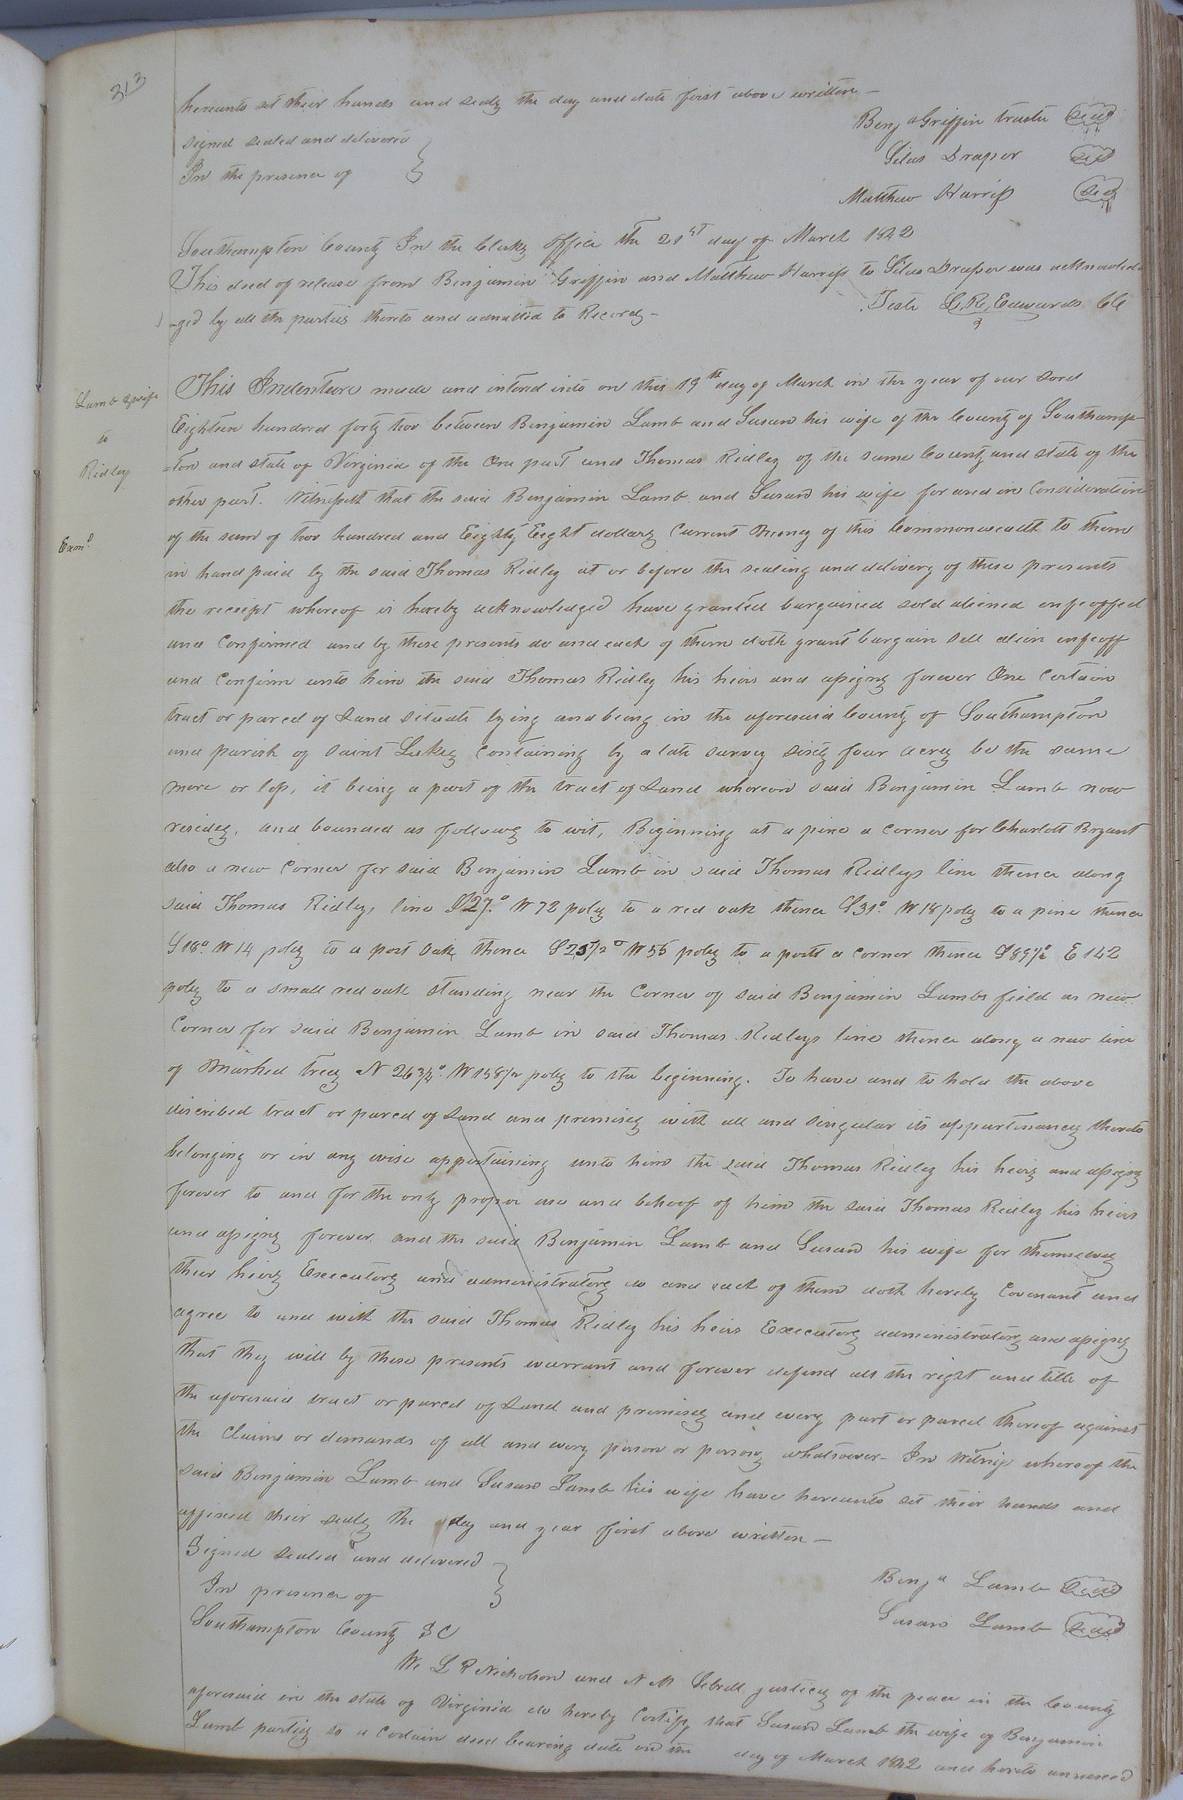 313
hereunto set their hands and seals the day and date first above written—
Benj a Griffin trustee seal
signed sealed and delivered
Silas Draper seal
In the presence of
Matthew Harriss seal
Southampton County In the Clerks office the 21st day of March 1842
This deed of release from Benjamin Griffin and Matthew Harriss to Silas Draper was acknowled-
-ged by all the parties thereto and admitted to Record—
Teste L. R. Edwards Clk
Lamb & wife
to
Ridley
Exmd
This Indenture made and intered into on this 19th day of March in the year of our Lord
Eighteen hundred forty two between Benjamin Lamb and Susan his wife of the County of Southamp-
-ton and state of Virginia of the One part and Thomas Ridley of the same County and state of the
other part. Witnesseth that the said Benjamin Lamb and Susan his wife for and in Consideration
of the sum of two hundred and Eighty Eight dollars Current Money of this Commonwealth to them
in hand paid by the said Thomas Ridley at or before the sealing and delivery of these presents
the receipt whereof is hereby acknowledged have granted bargained sold aliened enfeoffed
and Confirmed and by these presents do and each of them doth grant bargain sell alien enfeoff
and Confirm unto him the said Thomas Ridley his heirs and assigns forever One Certain
tract or parcel of Land situate lying and being in the aforesaid County of Southampton
and parish of Saint Lukes Containing by a late survey sixty four acres be the same
more or less, it being a part of the tract of Land whereon said Benjamin Lamb now
resides, and bounded as follows to wit, Beginning at a pine a corner for Charlott Bryant
also a new Corner for said Benjamin Lamb in said Thomas Ridleys line thence along
said Thomas Ridleys line S27.° W 72 poles to a red oak thence S31° W18 poles to a pine thence
S18° W 14 poles to a post Oak thence S25½° W 56 poles to a post a corner thence S89½° E 142
poles to a small red oak standing near the Corner of said Benjamin Lambs field as new
Corner for said Benjamin Lamb in said Thomas Ridleys line thence along a new line
of Marked trees N 26¾° W158½ poles to the beginning. To have and to hold the above
discribed tract or parcel of Land and premises with all and singular its appurtenances thereto
belonging or in any wise appertaining unto him the said Thomas Ridley his heirs and assigns
forever to and for the only proper use and behoof of him the said Thomas Ridley his heirs
and assigns forever and the said Benjamin Lamb and Susan his wife for themselves
their heirs Executors and administrators do and each of them doth hereby Covenant and
agree to and with the said Thomas Ridley his heirs Executors administrators and assigns
that they will by these presents warrant and forever defend all the right and title of
the aforesaid tract or parcel of Land and premises and every part or parcel thereof against
the Claims or demands of all and every person or persons whatsoever— In Witness whereof the
said Benjamin Lamb and Susan Lamb his wife have hereunto set their hands and
affixed their seals the day and year first above written—
Signed sealed and delivered
Benj a Lamb seal
In presence of
Susan Lamb seal
Southampton County S C
We L R Nicholson and N M Sebrell justices of the peace in the County
aforesaid in the state of Virginia do hereby Certify that Susan Lamb the wife of Benjamin
Lamb parties to a Certain deed bearing date on the day of March 1842 and hereto annexed